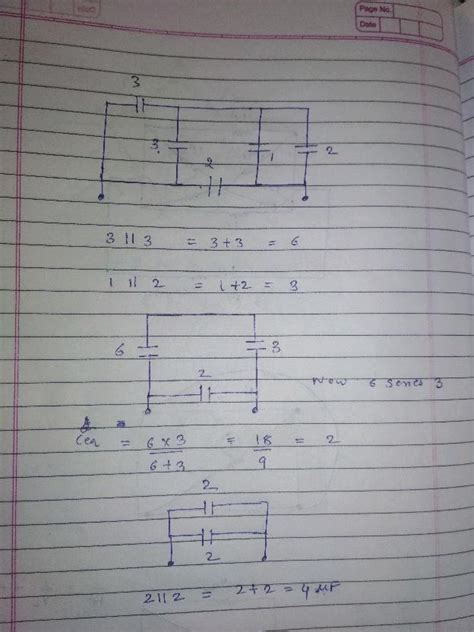 Page No.
Date
3
3
2
1
2
3 || 3 = 3+3 = 6
1 || 2 = 1+2 = 3
6
3
2
Now 6 series 3
Ceq = 6×3 = 18 = 2
6+3 9
2
2
2||2 = 2+2 = 4 μF